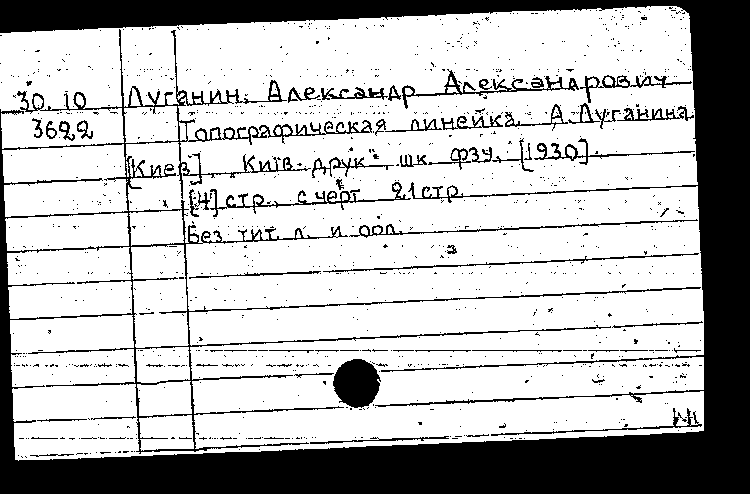 30.10 Луганин, Александр Александрович
3622 Топографическая линейка А. Луганина
[Киев], "Київ-друк", шк. ФЗУ, [1930].
[4] стр., с черт. 21 стр.
Без тит. л. и обл.